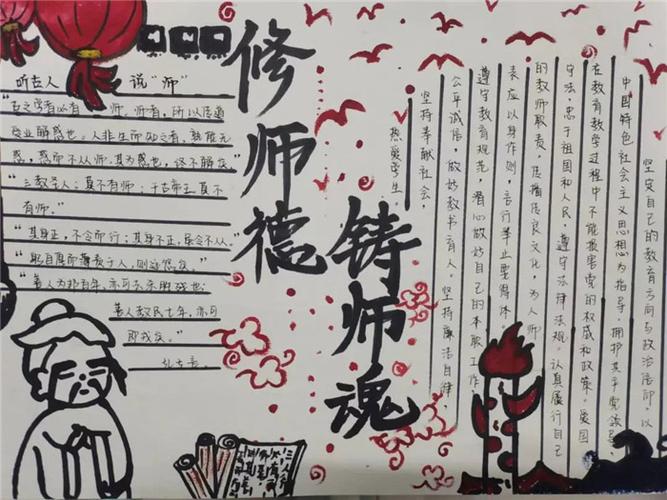 修师德
铸师魂
听古人 说"师"
"古之学者必有 师。师者,所以传道
授业解惑也。人非生而知之者,孰能无
惑,惑而不从师,其为惑也,终不解矣"
"三教圣人,莫不有师;千古帝王,莫不
有师。"
"其身正,不令而行;其身不正,虽令不从"
"躬自厚而薄责于人,则远怨矣。"
"善人为邦百年,亦可
善人教民七年,亦可
即戎矣。"
坚定自己的教育方向与政治信仰。以
中国特色社会主义思想为指导,拥护共产党领导,
在教育教学过程中不能损害党的权威和政策。爱国
守法,忠于祖国和人民,遵守法律法规。认真履行自己
的教师职责,传播优良文化。为人师
表应以身作则,言行举止要得体。
遵守教育规范,潜心做好自己的本职工作。
公平诚信,做好教书育人。坚持廉洁自律
坚持奉献社会,
热爱学生。
三人行